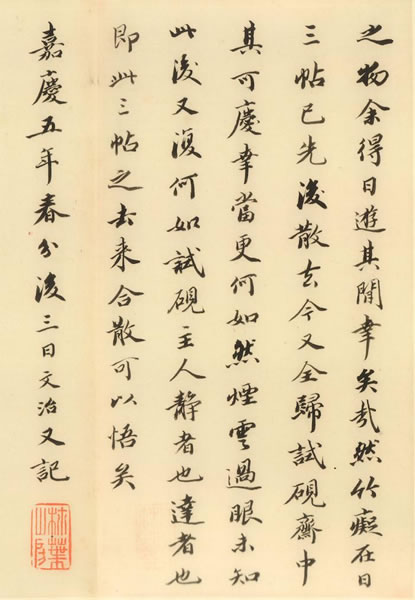 之物余得日遊其間幸矣哉然竹癡在日
三帖已先後散去今又全歸試硯齋中
其可慶幸當更何如然煙雲過眼未知
此後又復何如試硯主人静者也達者也
即此三帖之去来合散可以悟矣
嘉慶五年春分後三日文治又記
柿葉
山房